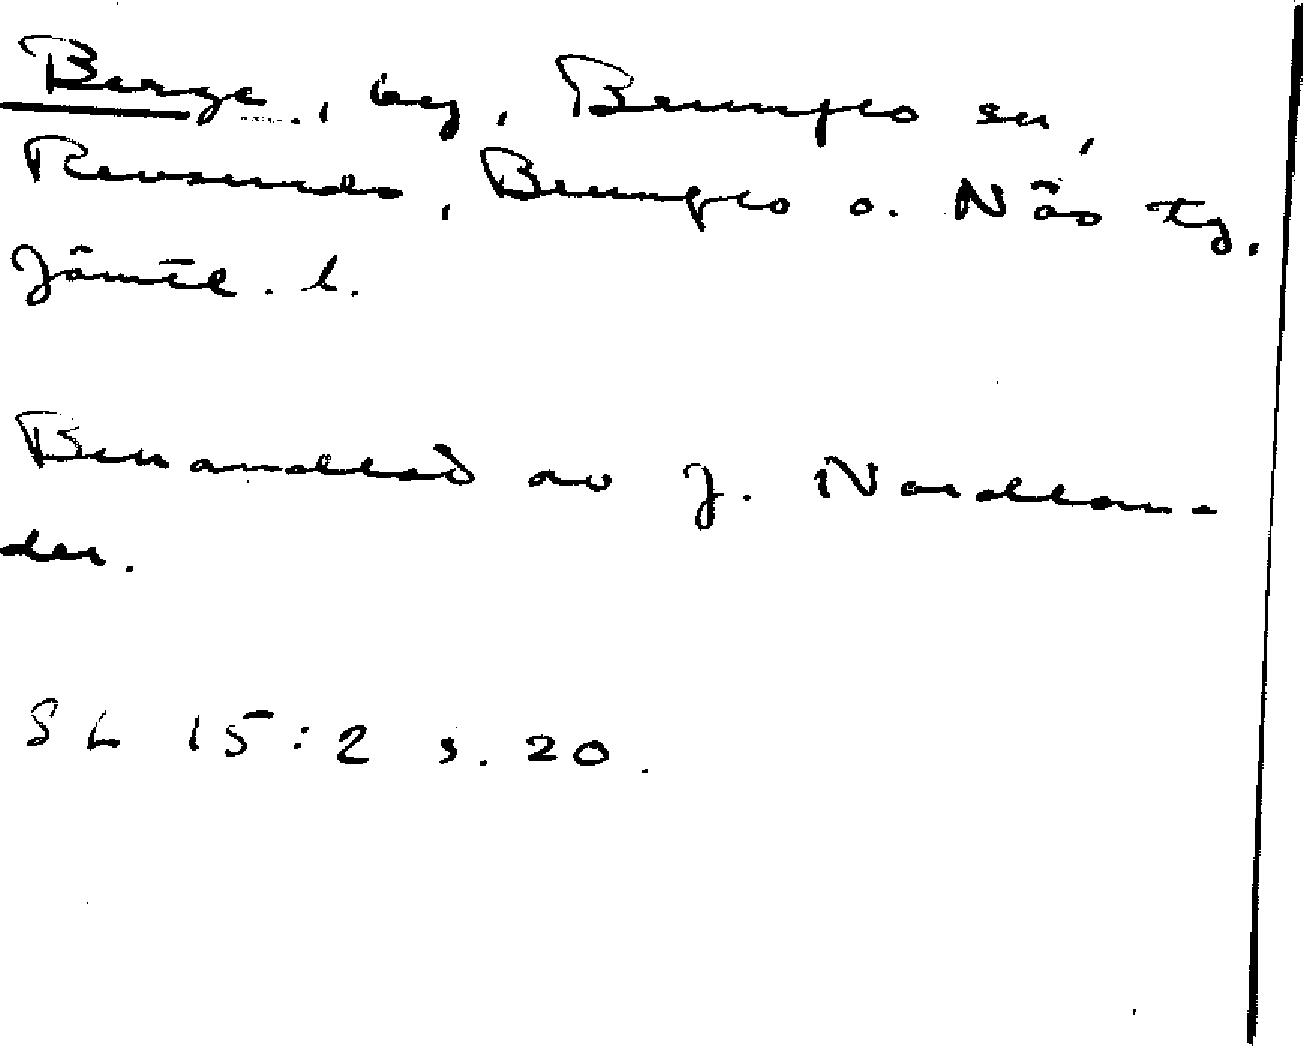 Berge, by, Brunflo sn,
Revsunds, Brunflo o. Näs tg,
Jämtl. l.
Behandlad av J. Nordlan-
der.
SL 15:2 s. 20.